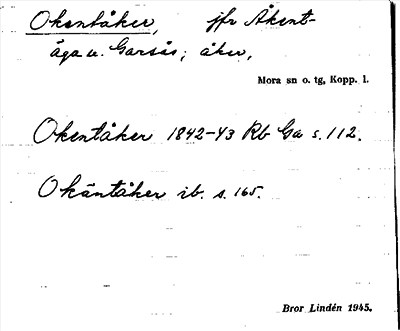 Okentåker, jfr Åkent-
äga u. Garsås; åker,
Mora sn o. tg, Kopp. l.
Okentåker 1842-43 Rb Ca s. 112.
Okäntåker ib. s. 165.
Bror Lindén 1945.